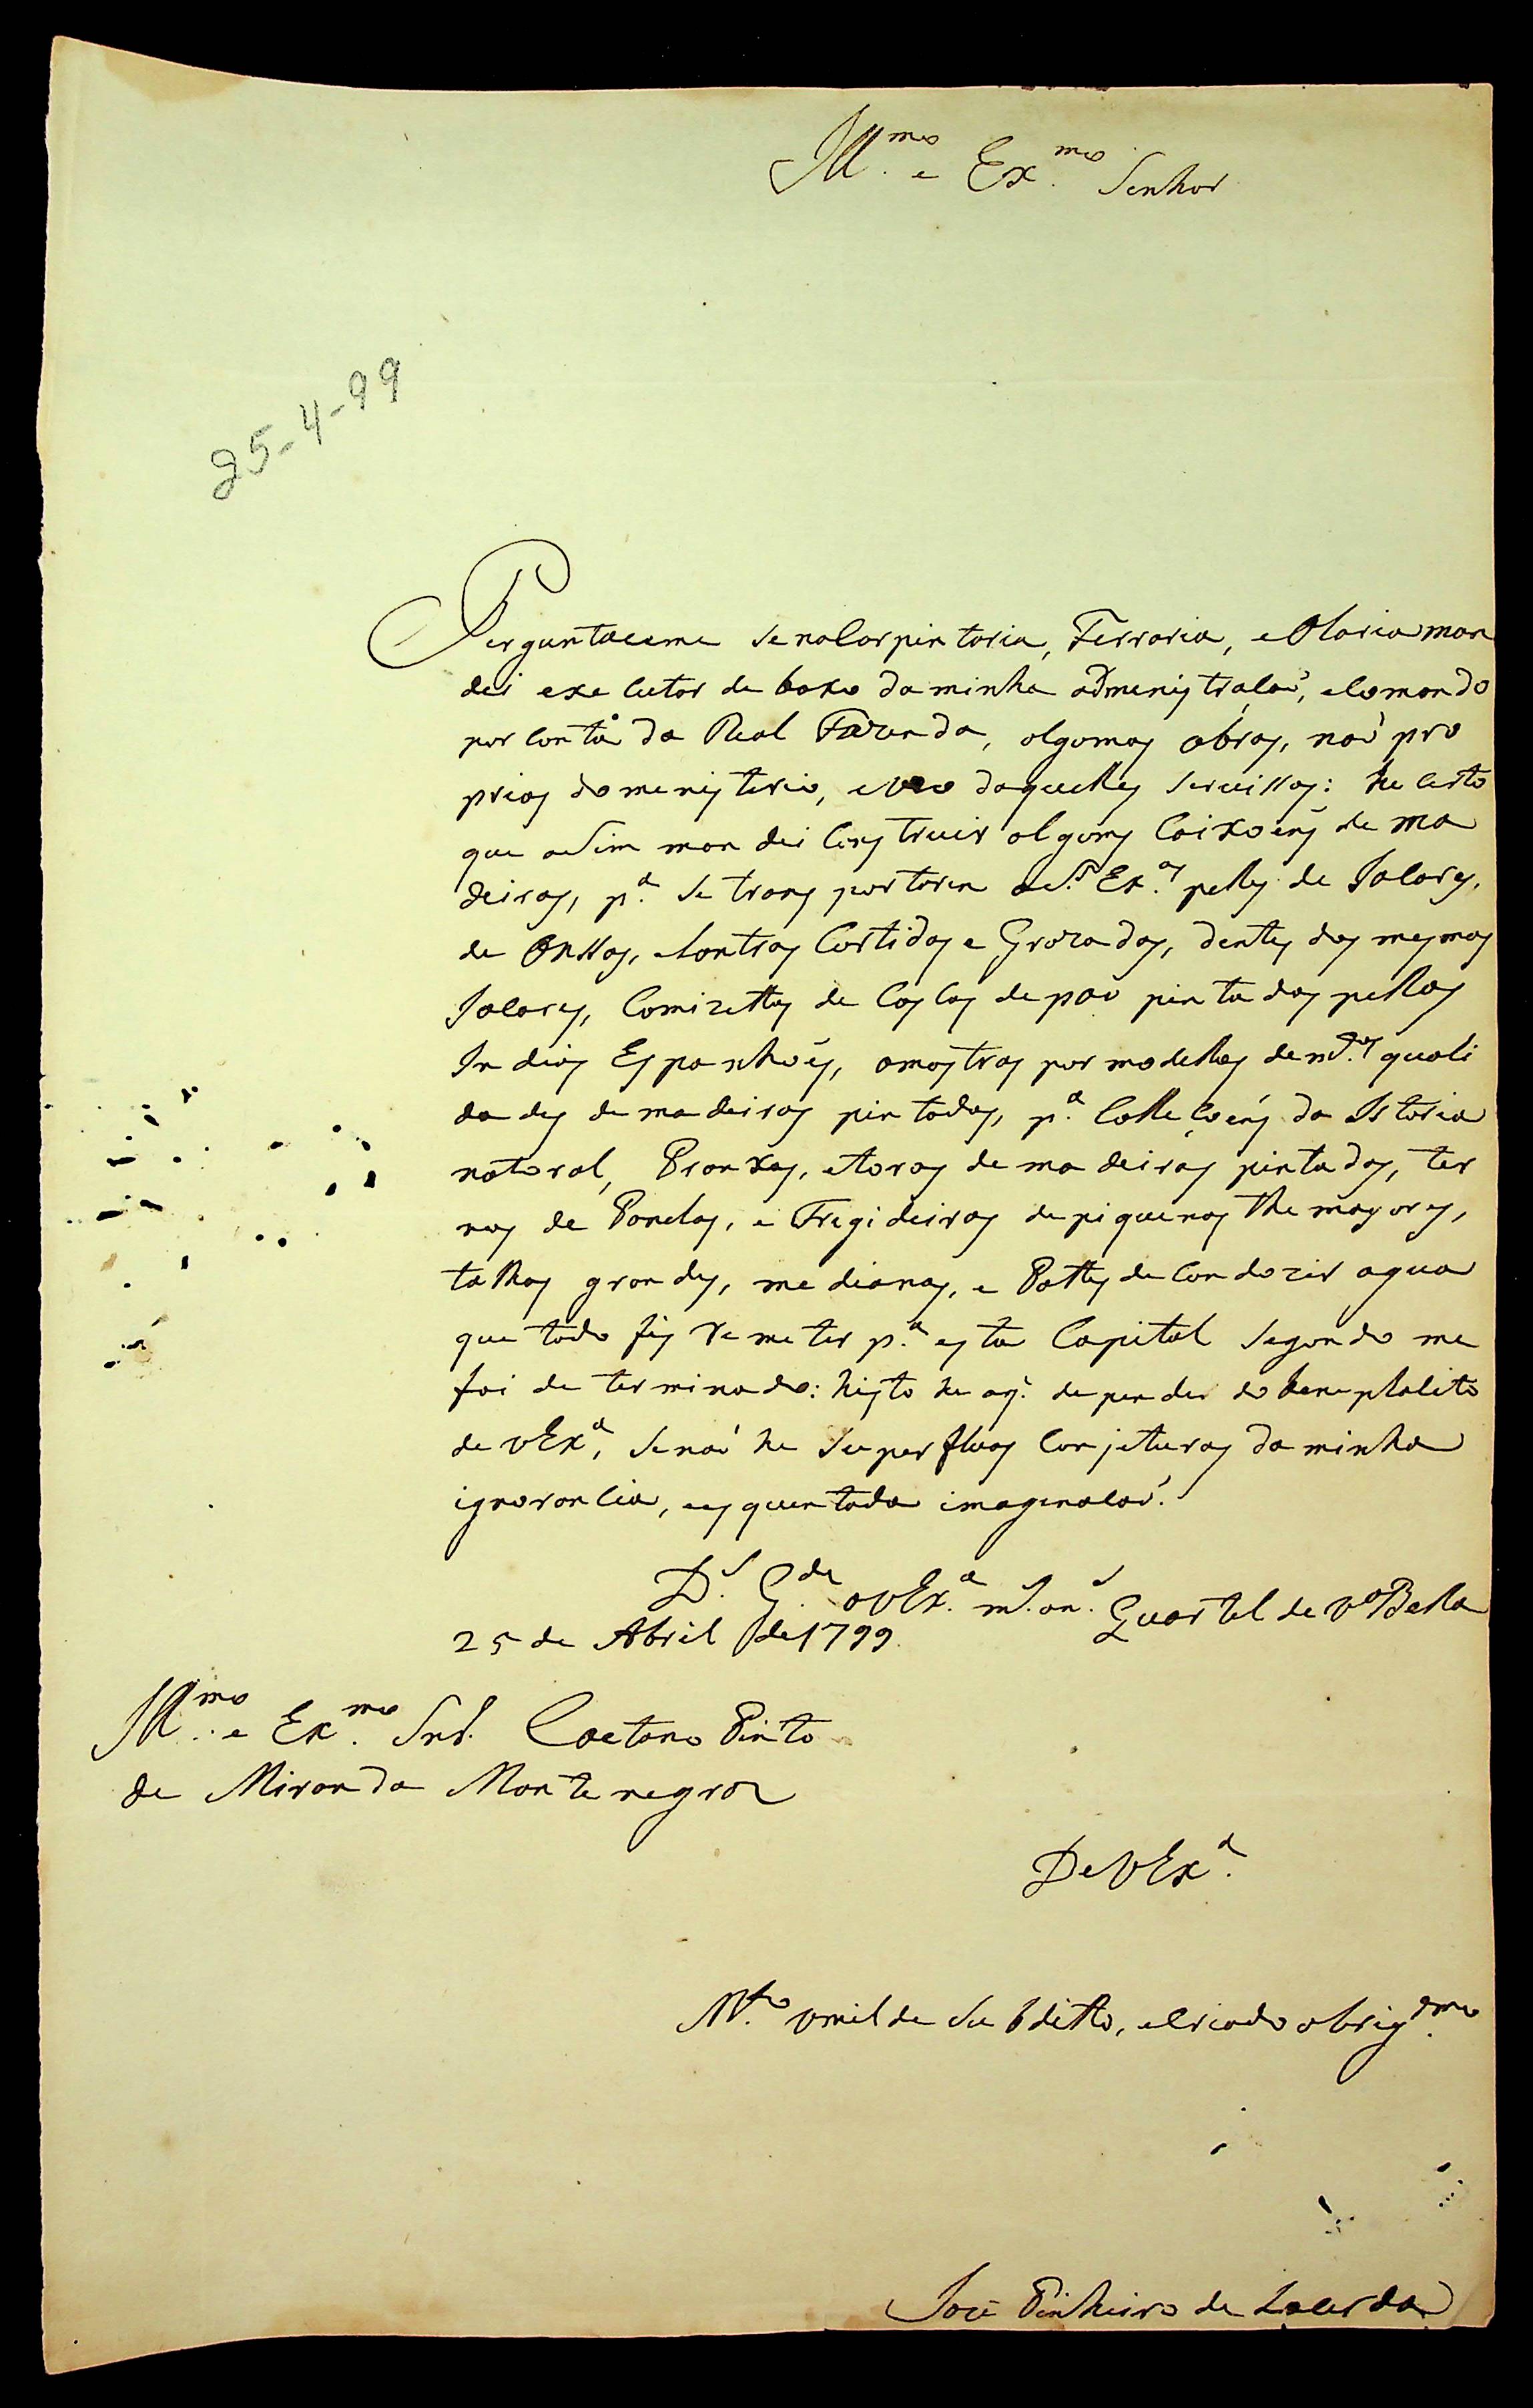 Ill.mo e Ex.mo Senhor
25-4-99
Perguntaceme se na Carpintaria, Ferraria, e Olaria man
dei exe cutar de baxo da minha admenistrasaõ, e comando
por conta da Real Fazenda, algumas obras, naõ pro
prias do menisterio, e uzo daquelles servissos: he certo
que asim man dei Construir alguns Caixoens de ma
deiras, p.a se trans portarem a S.s Ex.as pelles de Jacares,
de Onssas, Lontras Cortidas e Grozadas, dentes dos mesmos
Jacares, Comizettas de Cascas de pao pin tadas pellos
In dios Espanhoes, amostras por modellos de m.tas quali
da des de ma deiras pin tadas, p.a Colleçoens da Istoria
natural, Pranxas, e toras de ma deiras pintadas, ter
nos de Panelas, e Fregideiras de piquenas the mayores,
ta lhas grandes, me dianas, e Pottes de Condozir agua
que todo fis re me ter p.a esta Capital segundo me
foi de ter minado: histo he oq. de pen der do beneplacito
de V Ex.a, se naõ he superfluas Conjeturas da minha
ignorancia, e esquentada imaginasaõ.
D.s G.de a V Ex.a m.s an.s Quartel de V.a Bella
25 de Abril de 1799.
Ill.mo e Ex.mo Snr. Caetano Pinto
de Miranda Monte negro
De V Ex.a
M.to Umilde Subditto, e Criado obrig.dmo
Joze Pinheiro de Lacerda